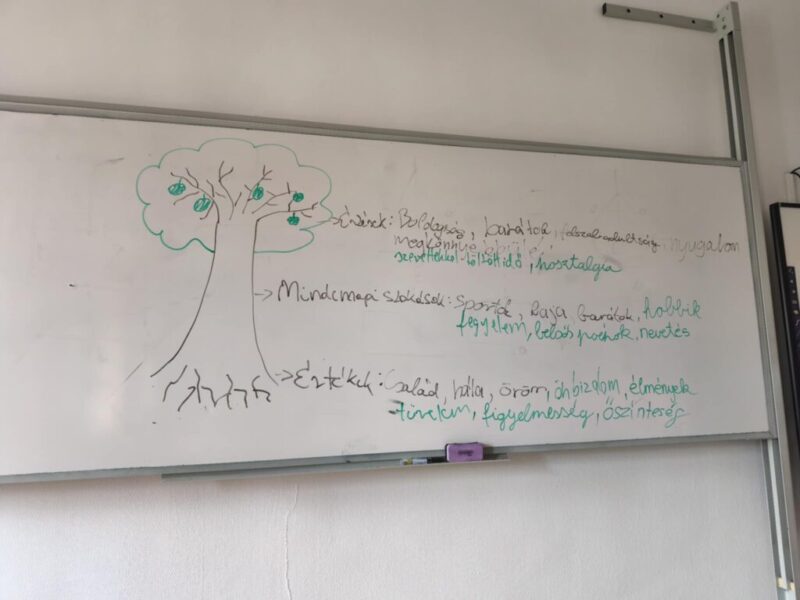 Érzések: Boldogság, barátok, felszabadultság, nyugalom
megkönnyebbülés,
szerettekkel töltött idő, nosztalgia
Mindennapi szokások: sportok, kaja barátok, hobbik
figyelem, belsős poénok, nevetés
Értékek: család, hála, öröm, önbizalom, élmények
türelem, figyelmesség, őszinteség